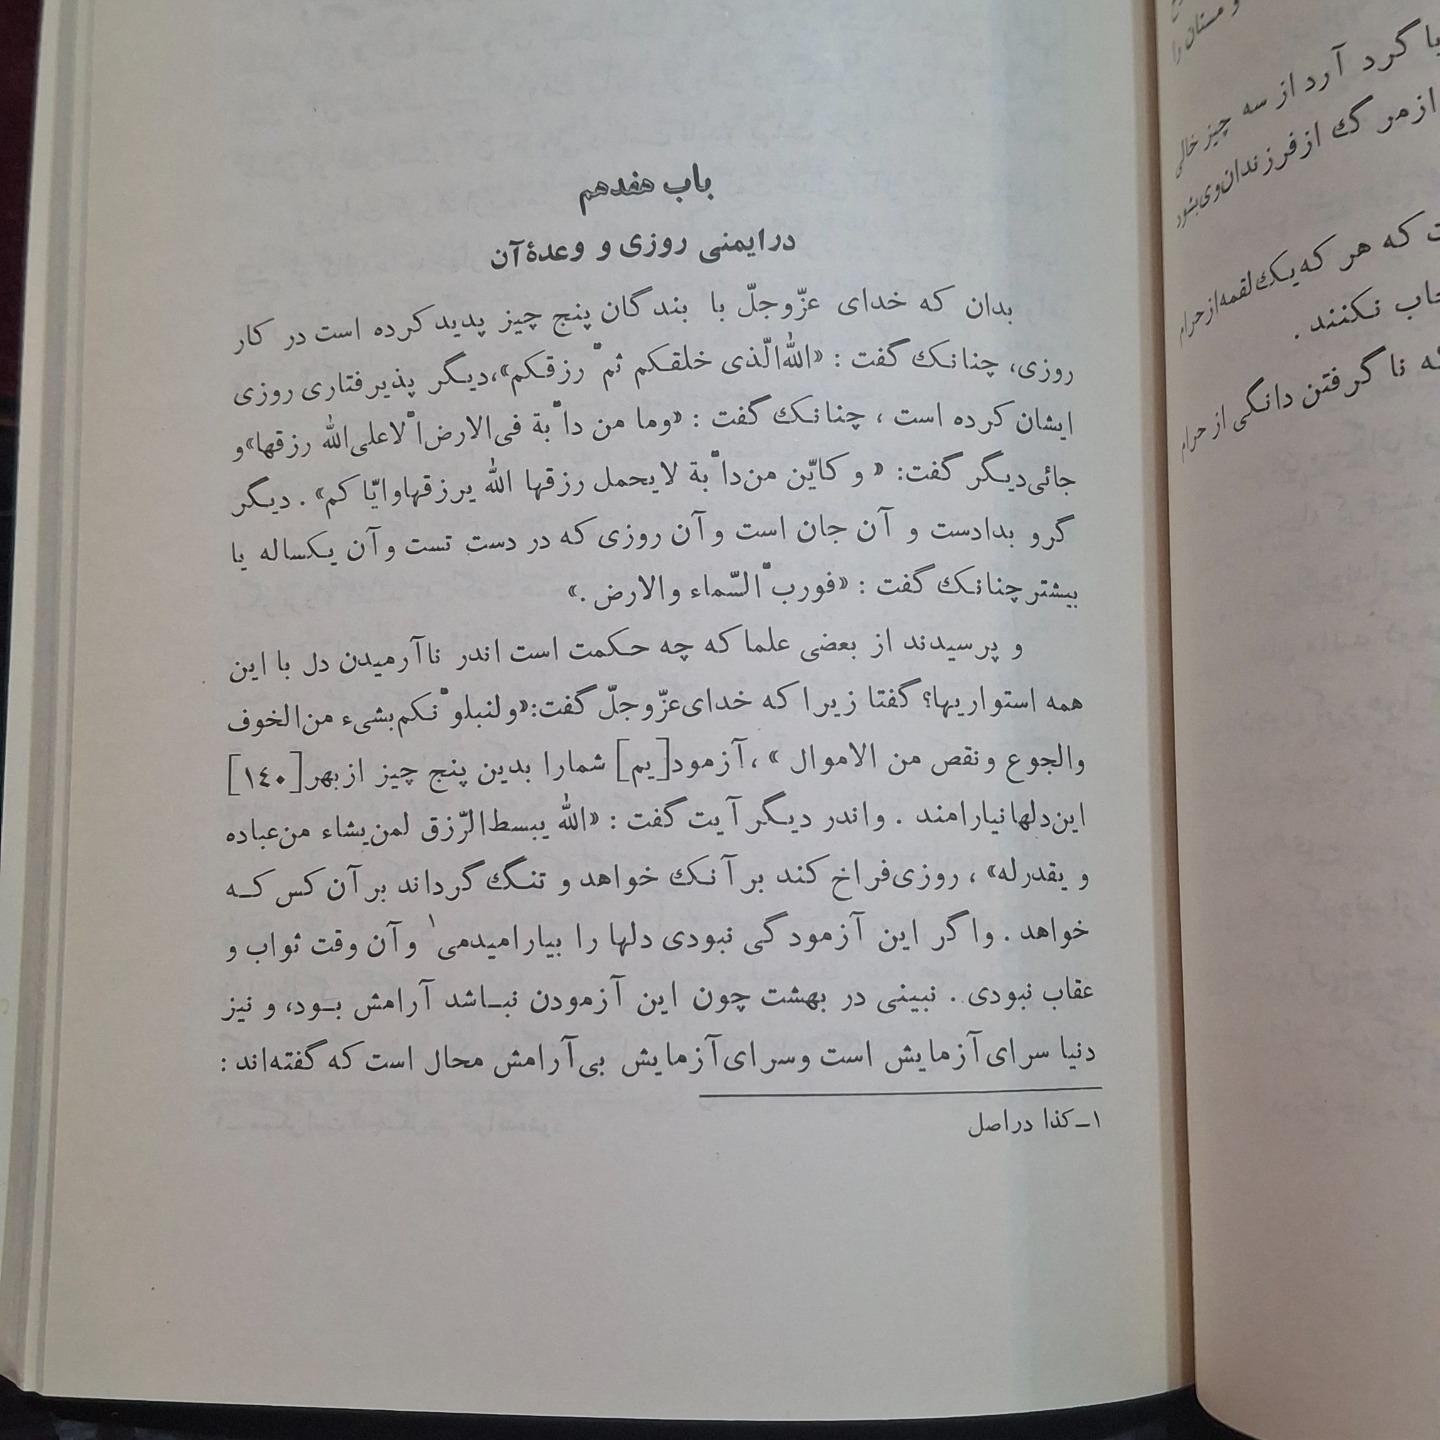 باب هفدهم
درایمنی روزی و وعدهٔ آن
بدان که خدای عزّوجلّ با بندگان پنج چیز پدید کرده است در کار
روزی، چنانک گفت : «الله‌الّذی خلقکم ثمّ رزقکم»،دیگر پذیرفتاری روزی
ایشان کرده است ، چنانک گفت : «وما من دابّة فی‌الارض‌الّاعلی‌الله رزقها»و
جائی‌دیگر گفت: « و کایّن من‌دابّة لایحمل رزقها الله یرزقهاوایّاکم» . دیگر
گرو بدادست و آن جان است و آن روزی که در دست تست و آن یکساله یا
بیشتر چنانک گفت : «فوربّ السّماء والارض .»
و پرسیدند از بعضی علما که چه حکمت است اندر ناآرمیدن دل با این
همه استواریها؟ گفتا زیرا که خدای‌عزّوجلّ گفت:«ولنبلونّکم‌بشیء من‌الخوف
والجوع ونقص من الاموال » ، آزمود[یم] شمارا بدین پنج چیز ازبهر [۱٤۰]
این‌دلهانیارامند . واندر دیگر آیت گفت : «الله یبسط‌الرّزق لمن‌یشاء من‌عباده
و یقدرله» ، روزی‌فراخ کند برآنک خواهد و تنگ گرداند برآن کس کـه
خواهد . واگر این آزمودگی نبودی دلها را بیارامیدمی۱ و آن وقت ثواب و
عقاب نبودی . نبینی در بهشت چون این آزمودن نبـاشد آرامش بـود، و نیز
دنیا سرای‌آزمایش است وسرای‌آزمایش بی‌آرامش محال است که گفته‌اند :
۱ـ کذا دراصل
و مستان را
با گرد آرد از سه چیز خالی
ازمرگ ازفرزندان‌وی‌بشود
که هر که‌یک‌لقمه‌ازحرام
نکنند .
نا گرفتن دانگی از حرام